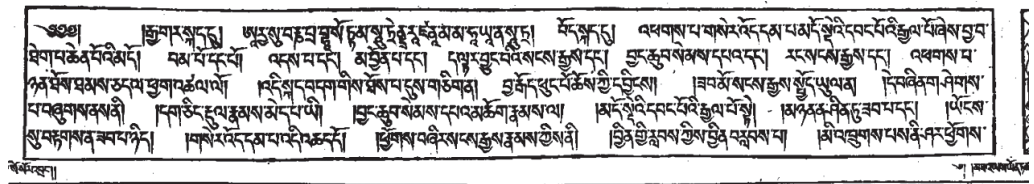 ༄༅༅། །རྒྱ་གར་སྐད་དུ། ཨཱརྱ་སུ་བརྞ་པྲ་བྷཱ་སོ་ཏྟ་མ་སཱུ་ཏྲེནྡྲ་རཱ་ཛ་ནཱ་མ་མ་ཧཱ་ཡཱ་ན་སཱུ་ཏྲ། བོད་སྐད་དུ། འཕགས་པ་གསེར་འོད་དམ་པ་མདོ་སྡེའི་དབང་པོའི་རྒྱལ་པོ་ཞེས་བྱ་བ་
ཐེག་པ་ཆེན་པོའི་མདོ། བམ་པོ་དང་པོ། འདས་པ་དང་། མ་བྱོན་པ་དང་། ད་ལྟར་བྱུང་བའི་སངས་རྒྱས་དང་། བྱང་ཆུབ་སེམས་དཔའ་དང་། རང་སངས་རྒྱས་དང་། འཕགས་པ་
ཉན་ཐོས་ཐམས་ཅད་ལ་ཕྱག་འཚལ་ལོ། །འདི་སྐད་བདག་གིས་ཐོས་པ་དུས་གཅིག་ན། བྱ་རྒོད་ཕུང་པོ་ཆོས་ཀྱི་དབྱིངས། །ཟབ་མོ་སངས་རྒྱས་སྤྱོད་ཡུལ་ན། །དེ་བཞིན་གཤེགས་
པ་བཞུགས་ནས་ནི། །དག་ཅིང་རྡུལ་རྣམས་མེད་པ་ཡི། །བྱང་ཆུབ་སེམས་དཔའ་མཆོག་རྣམས་ལ། །མདོ་སྡེའི་དབང་པོའི་རྒྱལ་པོ་སྟེ། །མཉན་ན་ཤིན་ཏུ་ཟབ་པ་དང་། །ཡོངས་
སུ་བརྟགས་ན་ཟབ་པ་ཉིད། །གསེར་འོད་དམ་པ་འདི་འཆད་དོ། །ཕྱོགས་བཞིར་སངས་རྒྱས་རྣམས་ཀྱིས་ནི། །བྱིན་གྱི་རླབས་ཀྱིས་བྱིན་བརླབས་པ། །མི་འཁྲུགས་པས་ནི་ཤར་ཕྱོགས་